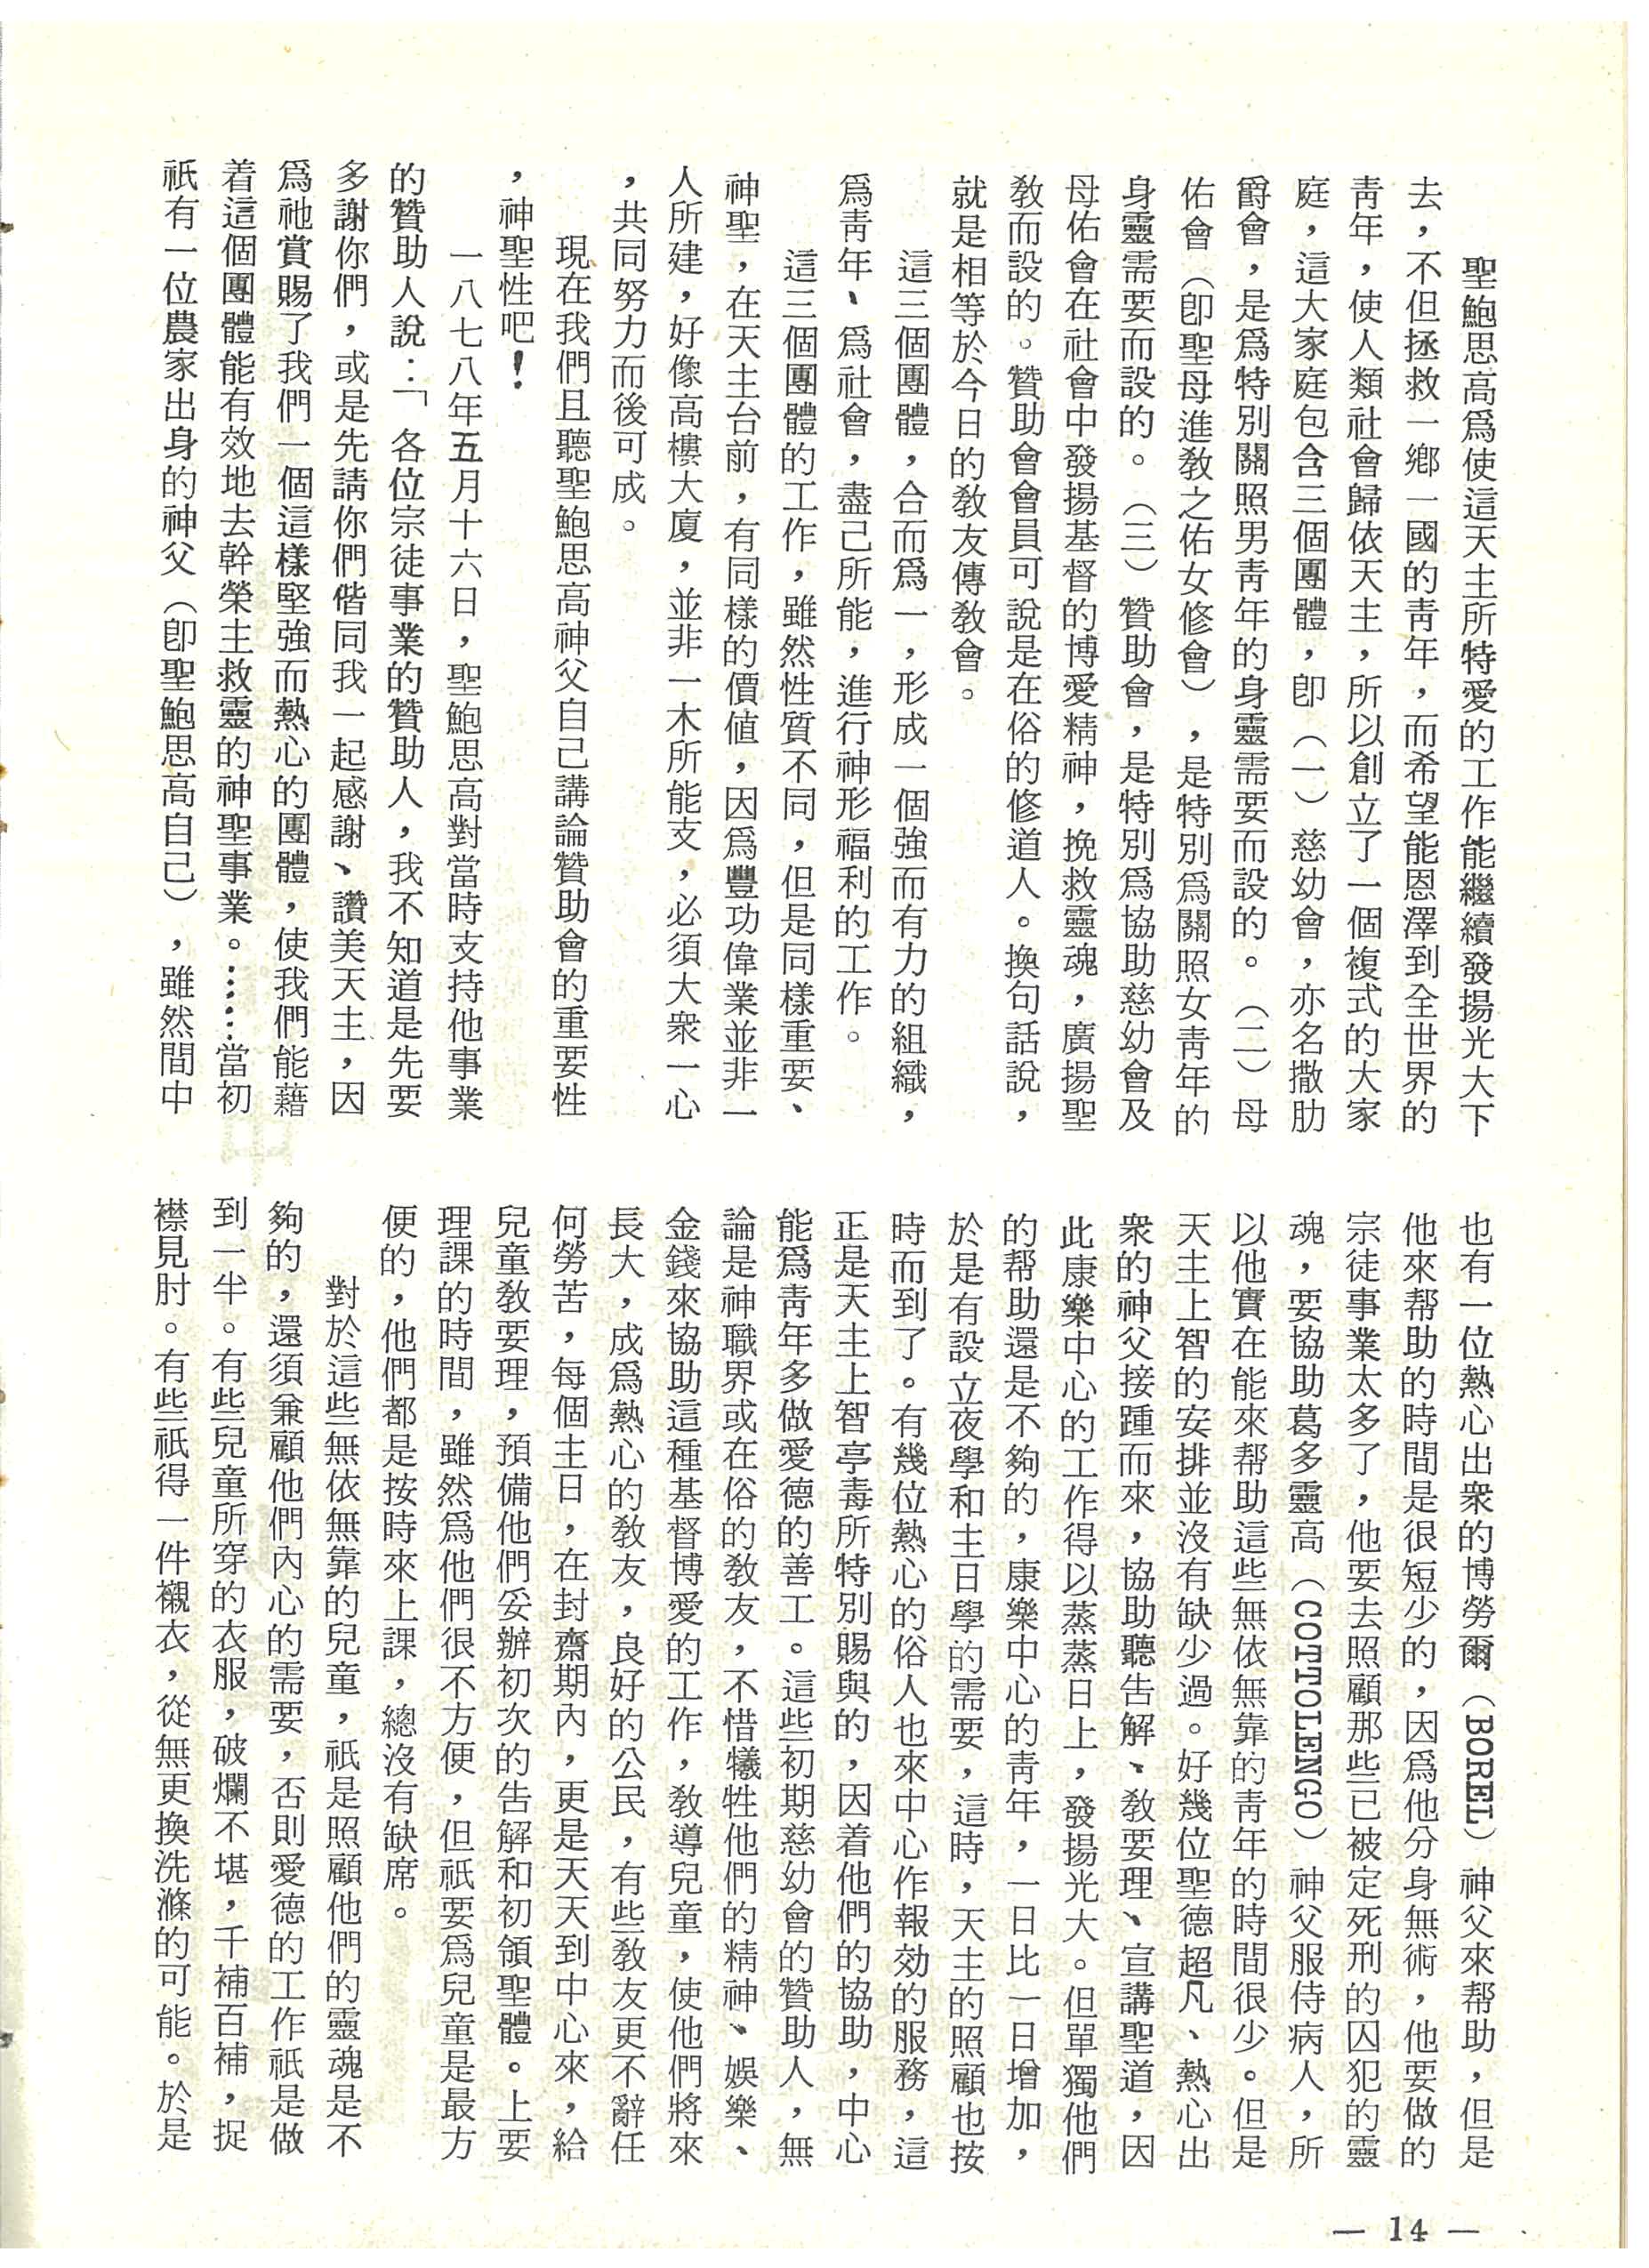 聖鮑思高爲使這天主所特愛的工作能繼續發揚光大下
去，不但拯救一鄉一國的靑年，而希望能恩澤到全世界的
靑年，使人類社會歸依天主，所以創立了一個複式的大家
庭，這大家庭包含三個團體，卽（一）慈幼會，亦名撒肋
爵會，是爲特別關照男靑年的身靈需要而設的。（二）母
佑會（卽聖母進敎之佑女修會），是特別爲關照女靑年的
身靈需要而設的。（三）贊助會，是特別爲協助慈幼會及
母佑會在社會中發揚基督的博愛精神，挽救靈魂，廣揚聖
敎而設的。贊助會會員可說是在俗的修道人。換句話說，
就是相等於今日的敎友傳敎會。
這三個團體，合而爲一，形成一個強而有力的組織，
爲靑年、爲社會，盡己所能，進行神形福利的工作。
這三個團體的工作，雖然性質不同，但是同樣重要、
神聖，在天主台前，有同樣的價値，因爲豐功偉業並非一
人所建，好像高樓大廈，並非一木所能支，必須大衆一心
，共同努力而後可成。
現在我們且聽聖鮑思高神父自己講論贊助會的重要性
，神聖性吧！
一八七八年五月十六日，聖鮑思高對當時支持他事業
的贊助人說：「各位宗徒事業的贊助人，我不知道是先要
多謝你們，或是先請你們偕同我一起感謝、讚美天主，因
爲祂賞賜了我們一個這樣堅強而熱心的團體，使我們能藉
着這個團體能有效地去幹榮主救靈的神聖事業。……當初
祇有一位農家出身的神父（卽聖鮑思高自己），雖然間中
也有一位熱心出衆的博勞爾（BOREL）神父來帮助，但是
他來帮助的時間是很短少的，因爲他分身無術，他要做的
宗徒事業太多了，他要去照顧那些已被定死刑的囚犯的靈
魂，要協助葛多靈高（COTTOLENGO）神父服侍病人，所
以他實在能來帮助這些無依無靠的靑年的時間很少。但是
天主上智的安排並沒有缺少過。好幾位聖德超凡、熱心出
衆的神父接踵而來，協助聽告解、敎要理、宣講聖道，因
此康樂中心的工作得以蒸蒸日上，發揚光大。但單獨他們
的帮助還是不夠的，康樂中心的靑年，一日比一日增加，
於是有設立夜學和主日學的需要，這時，天主的照顧也按
時而到了。有幾位熱心的俗人也來中心作報効的服務，這
正是天主上智亭毒所特別賜與的，因着他們的協助，中心
能爲靑年多做愛德的善工。這些初期慈幼會的贊助人，無
論是神職界或在俗的敎友，不惜犧牲他們的精神、娛樂、
金錢來協助這種基督博愛的工作，敎導兒童，使他們將來
長大，成爲熱心的敎友，良好的公民，有些敎友更不辭任
何勞苦，每個主日，在封齋期內，更是天天到中心來，給
兒童敎要理，預備他們妥辦初次的告解和初領聖體。上要
理課的時間，雖然爲他們很不方便，但祇要爲兒童是最方
便的，他們都是按時來上課，總沒有缺席。
對於這些無依無靠的兒童，祇是照顧他們的靈魂是不
夠的，還須兼顧他們內心的需要，否則愛德的工作祇是做
到一半。有些兒童所穿的衣服，破爛不堪，千補百補，捉
襟見肘。有些祇得一件襯衣，從無更換洗滌的可能。於是
— 14 —